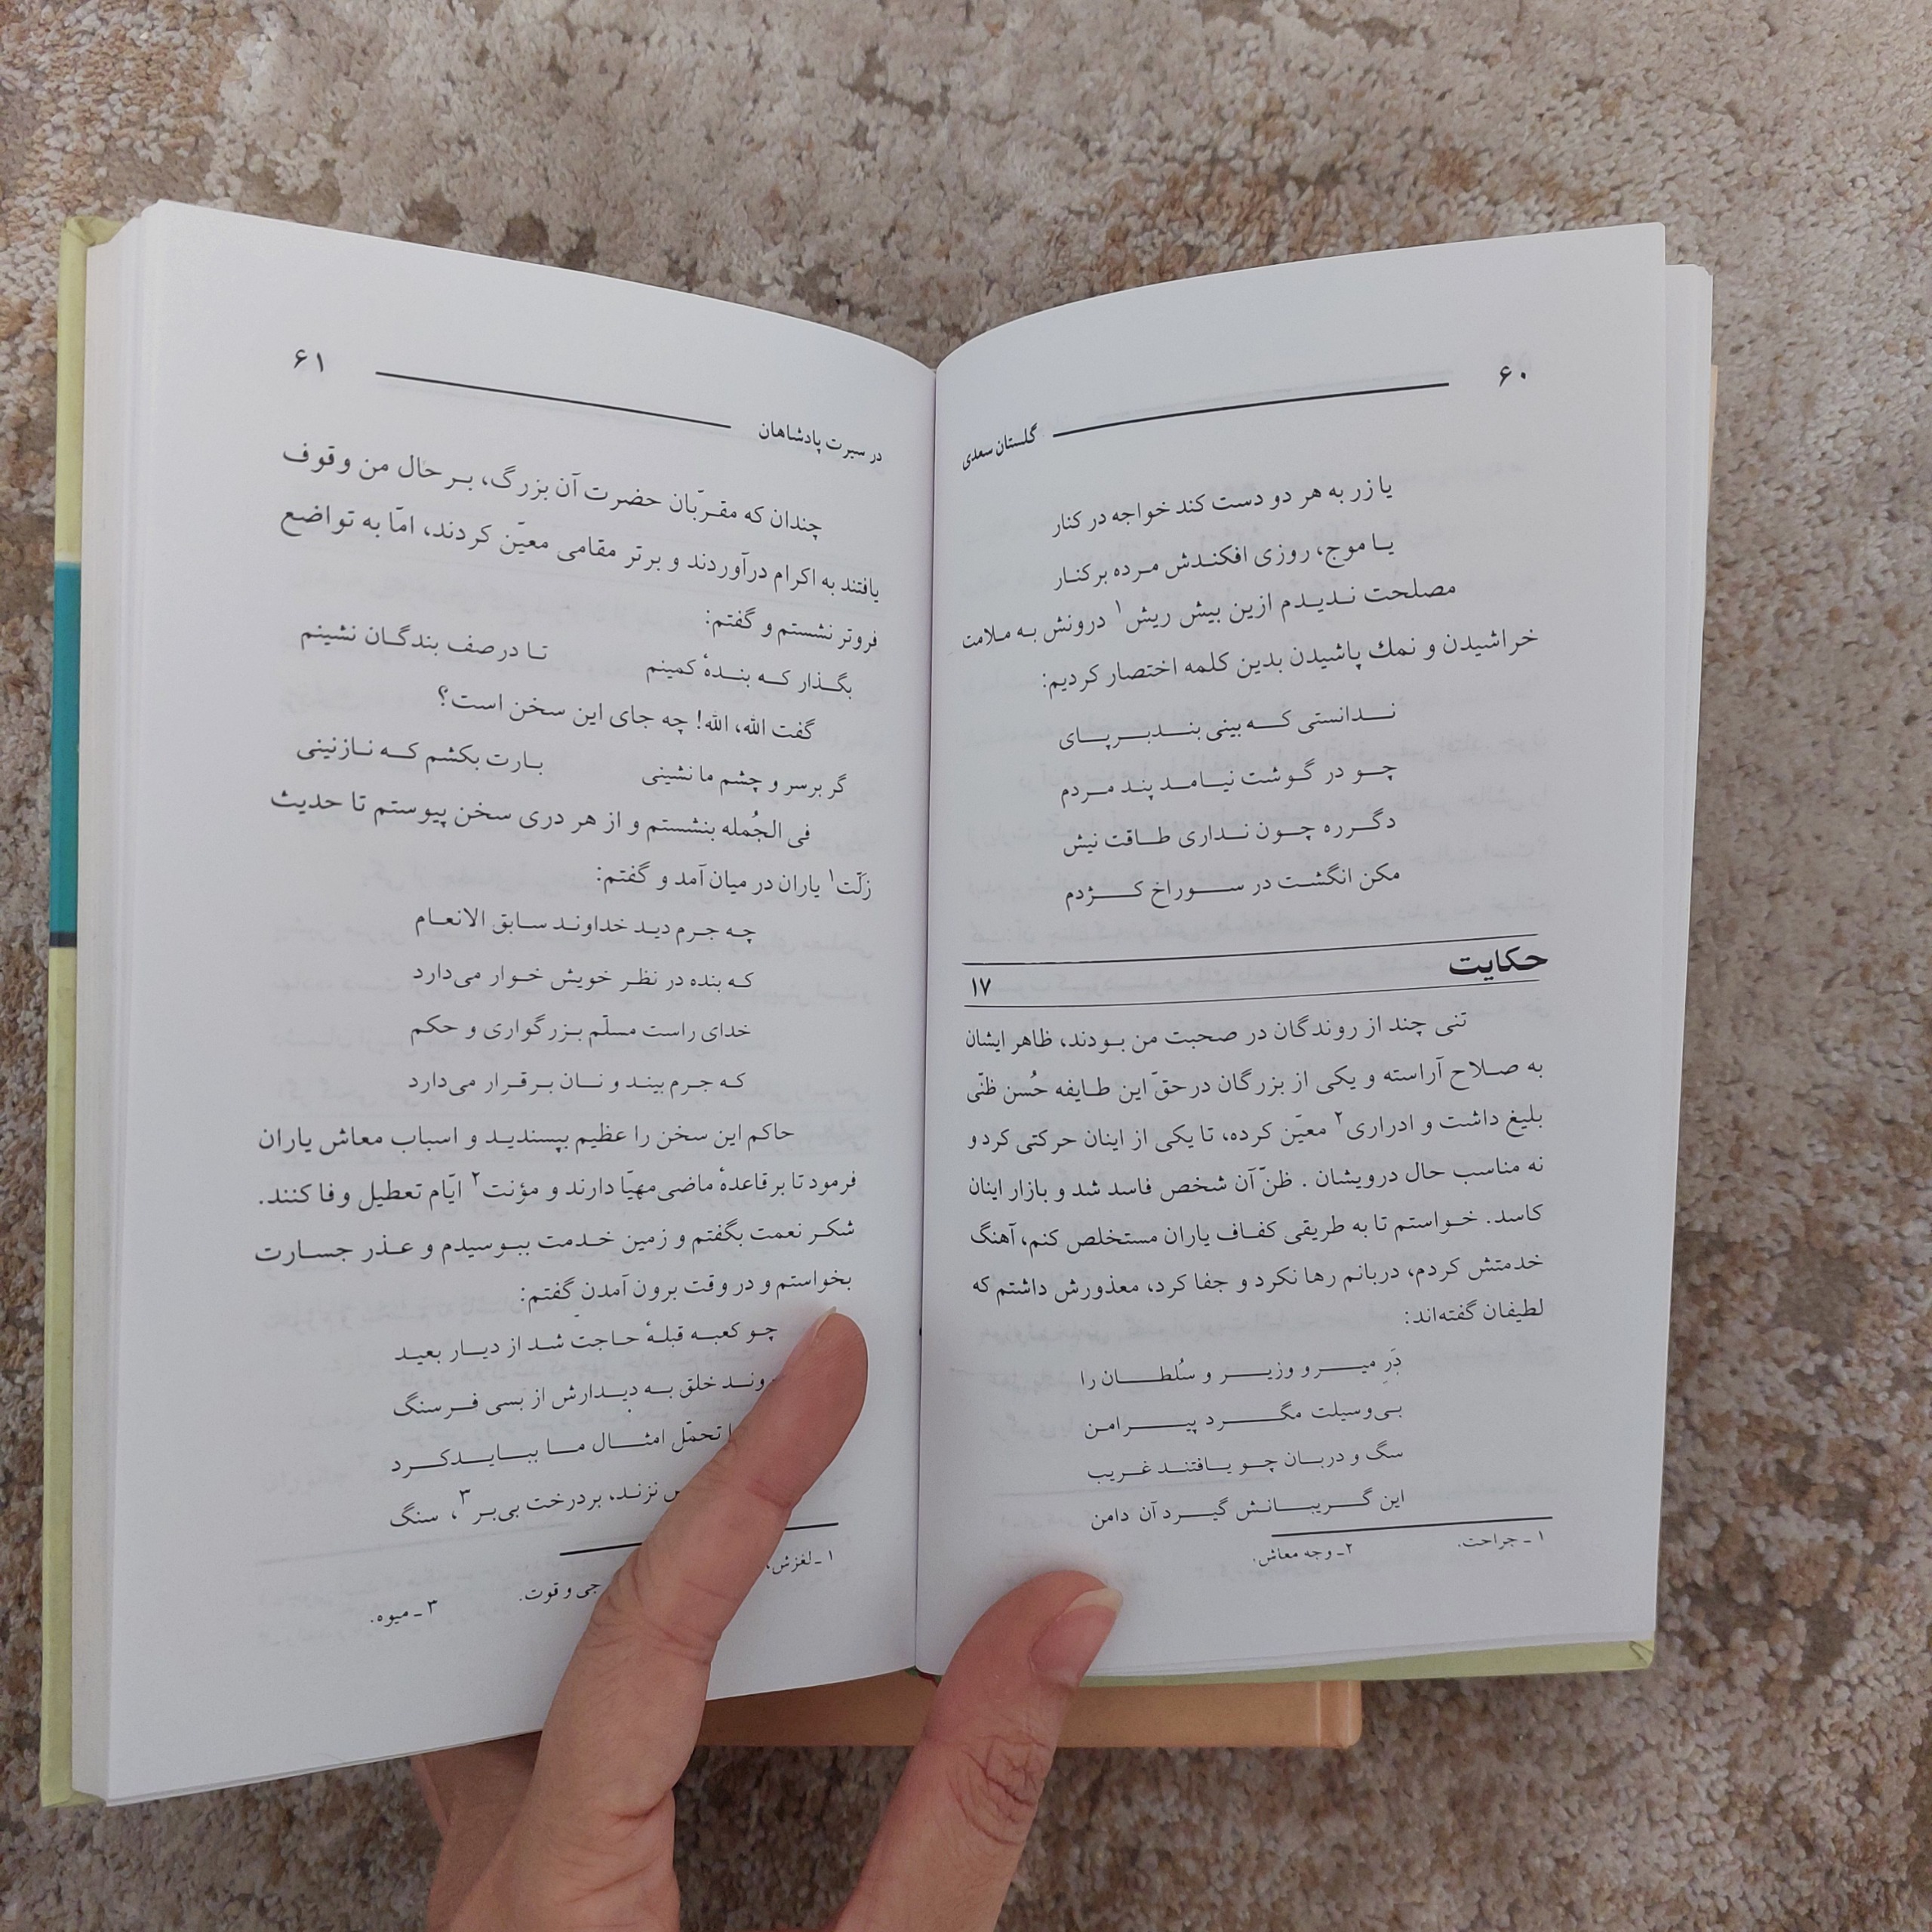 ۶۰
گلستان سعدی
یا زر به هر دو دست کند خواجه در کنار
یـا موج، روزی افکنـدش مـرده برکنـار
مصلحت نـدیـدم ازین بیش ریش۱ درونش بـه مـلامت
خراشیدن و نمك پاشیدن بدین کلمه اختصار کردیم:
نـدانستی کـه بینی بنـدبـرپـای
چـو در گـوشت نیـامـد پند مـردم
دگـرره چـون نـداری طـاقت نیش
مکن انگشت در سـوراخ کـژدم
حکایت
۱۷
تنی چند از روندگان در صحبت من بـودند، ظاهر ایشان
به صـلاح آراسته و یکی از بزرگان درحقّ این طـایفه حُسن ظنّی
بلیغ داشت و ادراری۲ معیّن کرده، تا یکی از اینان حرکتی کرد و
نه مناسب حال درویشان . ظنّ آن شخص فاسد شد و بازار اینان
کاسد. خـواستم تا به طریقی کفـاف یاران مستخلص کنم، آهنگ
خدمتش کردم، دربانم رها نکرد و جفا کرد، معذورش داشتم که
لطیفان گفته‌اند:
دَرِ میـر و وزیـر و سُلطـان را
بـی‌وسیلت مگـرد پیـرامـن
سگ و دربـان چـو یـافتنـد غـریب
این گـریبـانـش گیـرد آن دامن
۱ ـ جراحت.
۲ـ وجه معاش.
۶۱
در سیرت پادشاهان
چندان که مقـرّبان حضرت آن بزرگ، بـر حال من وقوف
یافتند به اکرام درآوردند و برتر مقامی معیّن کردند، امّا به تواضع
فروتر نشستم و گفتم:
بگـذار کـه بنـدهٔ کمینم تـا درصف بندگـان نشینم
گفت الله، الله! چه جای این سخن است؟
گر برسر و چشم ما نشینی بـارت بکشم کـه نـازنینی
فی الجُمله بنشستم و از هر دری سخن پیوستم تا حدیث
زلّت۱ یاران در میان آمد و گفتم:
چـه جـرم دیـد خداونـد سـابق الانعـام
کـه بنده در نظـر خویش خـوار می‌دارد
خدای راست مسلّم بـزرگواری و حکم
کـه جـرم بینـد و نـان بـرقـرار می‌دارد
حاکم این سخن را عظیم بپسندیـد و اسباب معاش یاران
فرمود تا بر قاعدهٔ ماضی مهیّا دارند و مؤنت۲ ایّام تعطیل وفا کنند.
شکـر نعمت بگفتم و زمین خـدمت ببـوسیدم و عـذر جسـارت
بخواستم و در وقت برون آمدن گفتم:
چـو کعبـه قبلـهٔ حـاجت شـد از دیـار بعیـد
رونـد خلق بـه دیـدارش از بسی فـرسنگ
تحمّل امثـال مـا ببـایـدکـرد
نزنـد، بردرخت بی‌بـر۳، سنگ
۱ ـ لغزش.
و قوت.
۳ ـ میوه.